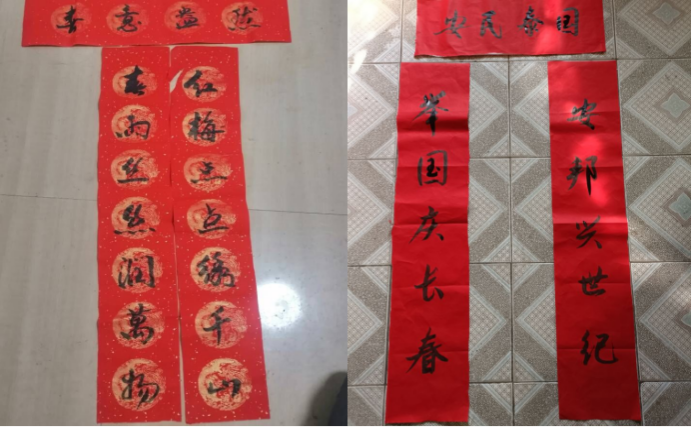 春意盎然
红梅点点绣千山
春雨丝丝润萬物
国泰民安
安邦兴世纪
举国庆长春